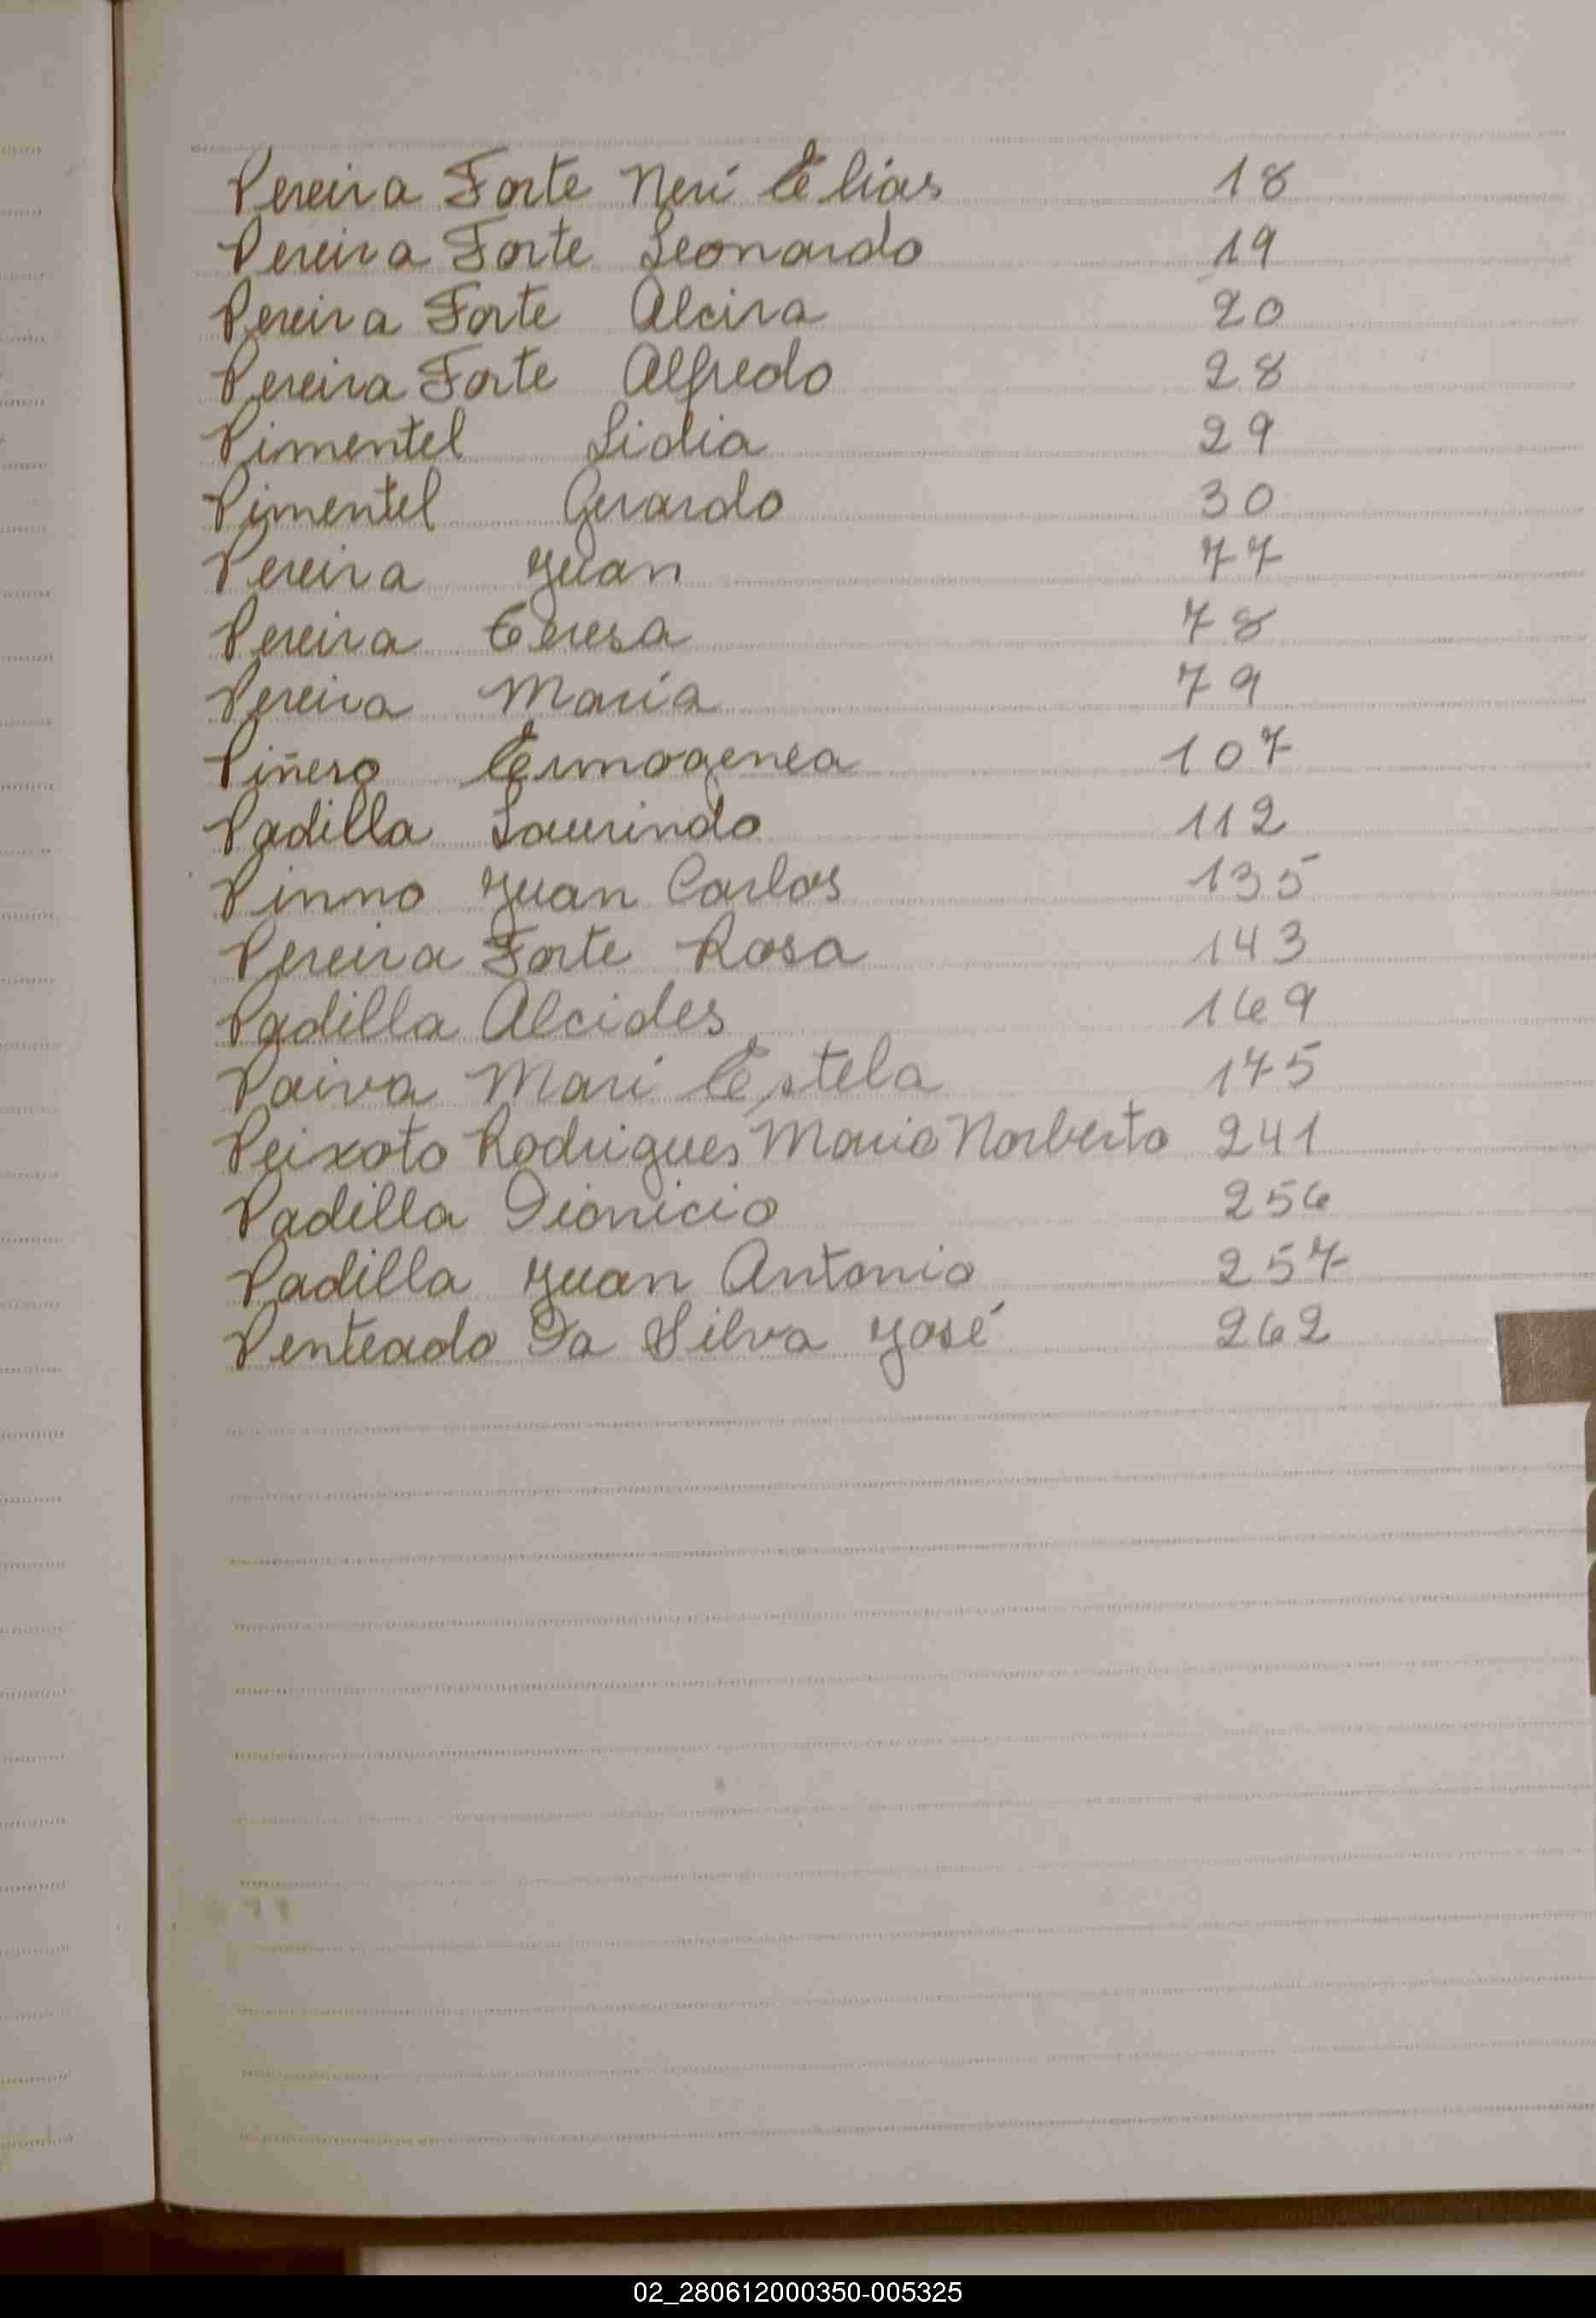 Pereira Forte Neri Elias 18
Pereira Forte Leonardo 19
Pereira Forte Alcira 20
Pereira Forte Alfredo 28
Pimentel Lidia 29
Pimentel Gerardo 30
Pereira Juan 77
Pereira Teresa 78
Pereira Maria 79
Piñero Ermogenea 107
Padilla Laurindo 112
Pinno Juan Carlos 135
Pereira Forte Rosa 143
Padilla Alcides 169
Paiva Mari Estela 175
Peixoto Rodrigues Mario Norberto 241
Padilla Dionicio 256
Padilla Juan Antonio 257
Penteado Da Silva José 262
02_280612000350-005325